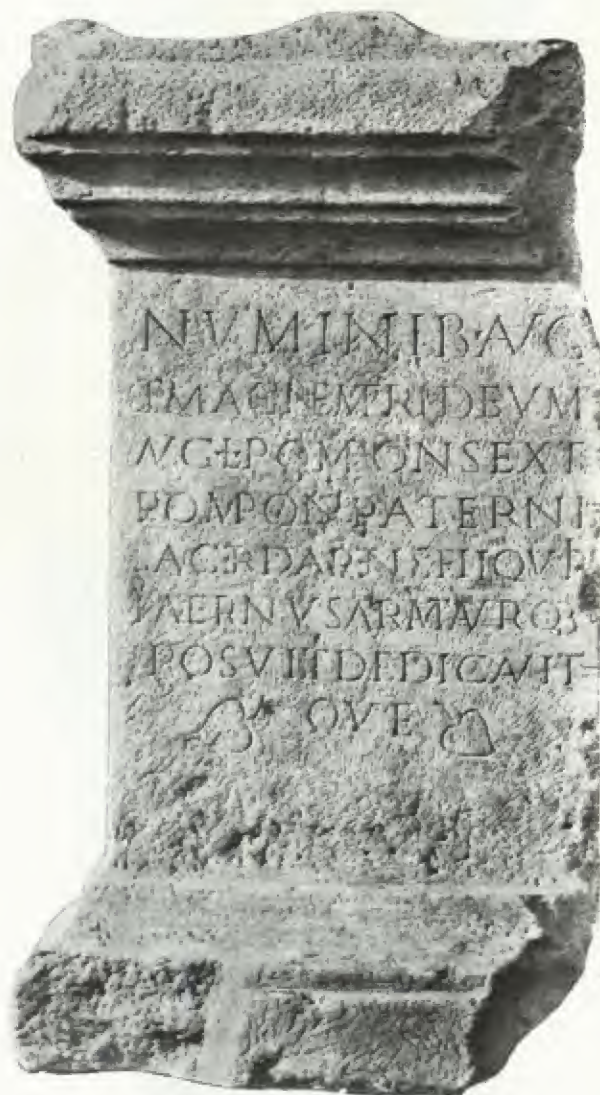 NVMINIB·AVG
MATRI DEVM
AVG L POMPON SEXT
POMPON PATERNI
ACERD ARENS FIL QVIR
PATERNVS
POSVIT DEDICAVIT
QVE